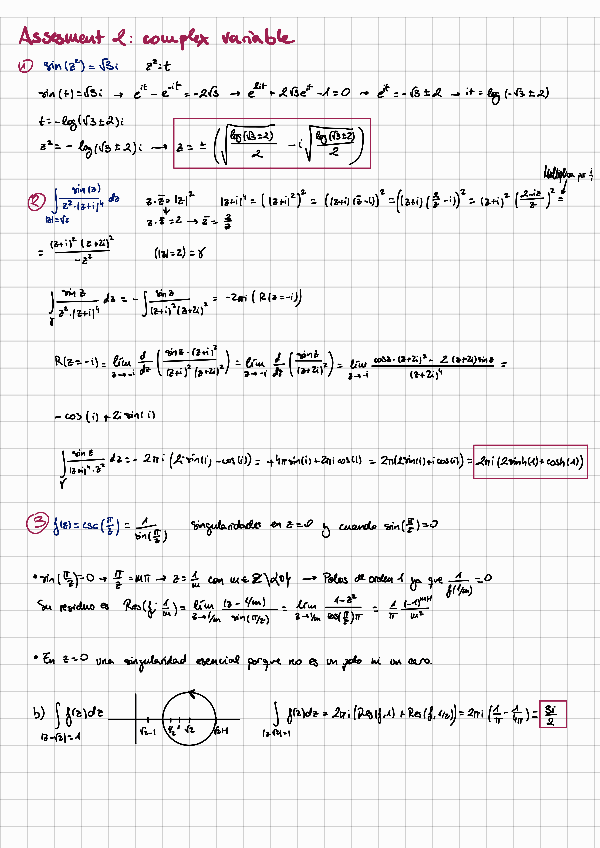 Assesment 2: complex variable
1) sin(z²) = √3 i   z² = t
sin(t) = √3 i → e^{it} - e^{-it} = -2√3 → e^{2it} + 2√3 e^{it} - 1 = 0 → e^{it} = -√3 ± 2 → it = log(-√3 ± 2)
t = -log(√3 ± 2) i
z² = - log(√3 ± 2) i → z = ± ( √(log(√3 ± 2)/2) - i √(log(√3 ± 2)/2) )
Multiplica por i
2) ∫_{|z|=√2} sin(z)/(z²·|z+i|⁴) dz   z·z̄ = |z|²   |z+i|⁴ = (|z+i|²)² = ((z+i)(z̄-i))² = ((z+i)(2/z - i))² = (z+i)² ((2-iz)/z)² =
z·z̄ = 2 → z̄ = 2/z
= (z+i)² (z+2i)² / -z²   (|z|=2) = γ
∫_γ sin z/(z²·|z+i|⁴) dz = - ∫ sin z/((z+i)²(z+2i)²) = -2πi (R(z=-i))
R(z=-i) = lim_{z→-i} d/dz ( sin z·(z+i)² / ((z+i)²(z+2i)²) ) = lim_{z→-i} d/dz ( sin z/(z+2i)² ) = lim_{z→-i} (cos z·(z+2i)² - 2(z+2i) sin z)/(z+2i)⁴ =
- cos(i) + 2i sin(i)
∫_γ sin z/(|z+i|⁴·z²) dz = - 2πi (2i sin(i) - cos(i)) = +4π sin(i) + 2πi cos(i) = 2π(2 sin(i) + i cos(i)) = 2πi (2 sinh(1) + cosh(1))
3) f(z) = csc(π/z) = 1/sin(π/z)   singularidades en z=0 y cuando sin(π/z) = 0
• sin(π/z) = 0 → π/z = mπ → z = 1/m con m ∈ Z\{0} → Polos de orden 1 ya que 1/f(1/m) = 0
Su residuo es Res(f; 1/m) = lim_{z→1/m} (z - 1/m)/sin(π/z) = lim_{z→1/m} 1·-z²/(cos(π/z)π) = 1/π (-1)^{m+1}/m²
• En z=0 una singularidad esencial porque no es un polo ni un cero.
b) ∫_{|z-√2|=1} f(z)dz   √2-1   1/2   1   √2   √2+1   ∫_{|z-√2|=1} f(z)dz = 2πi (Res(f,1) + Res(f,1/2)) = 2πi (1/π - 1/4π) = 3i/2